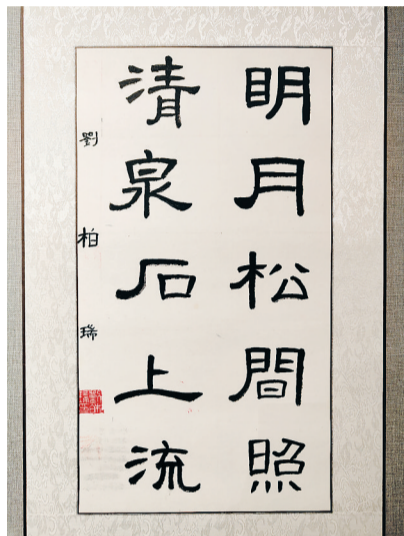 明月松間照
清泉石上流
劉柏瑞